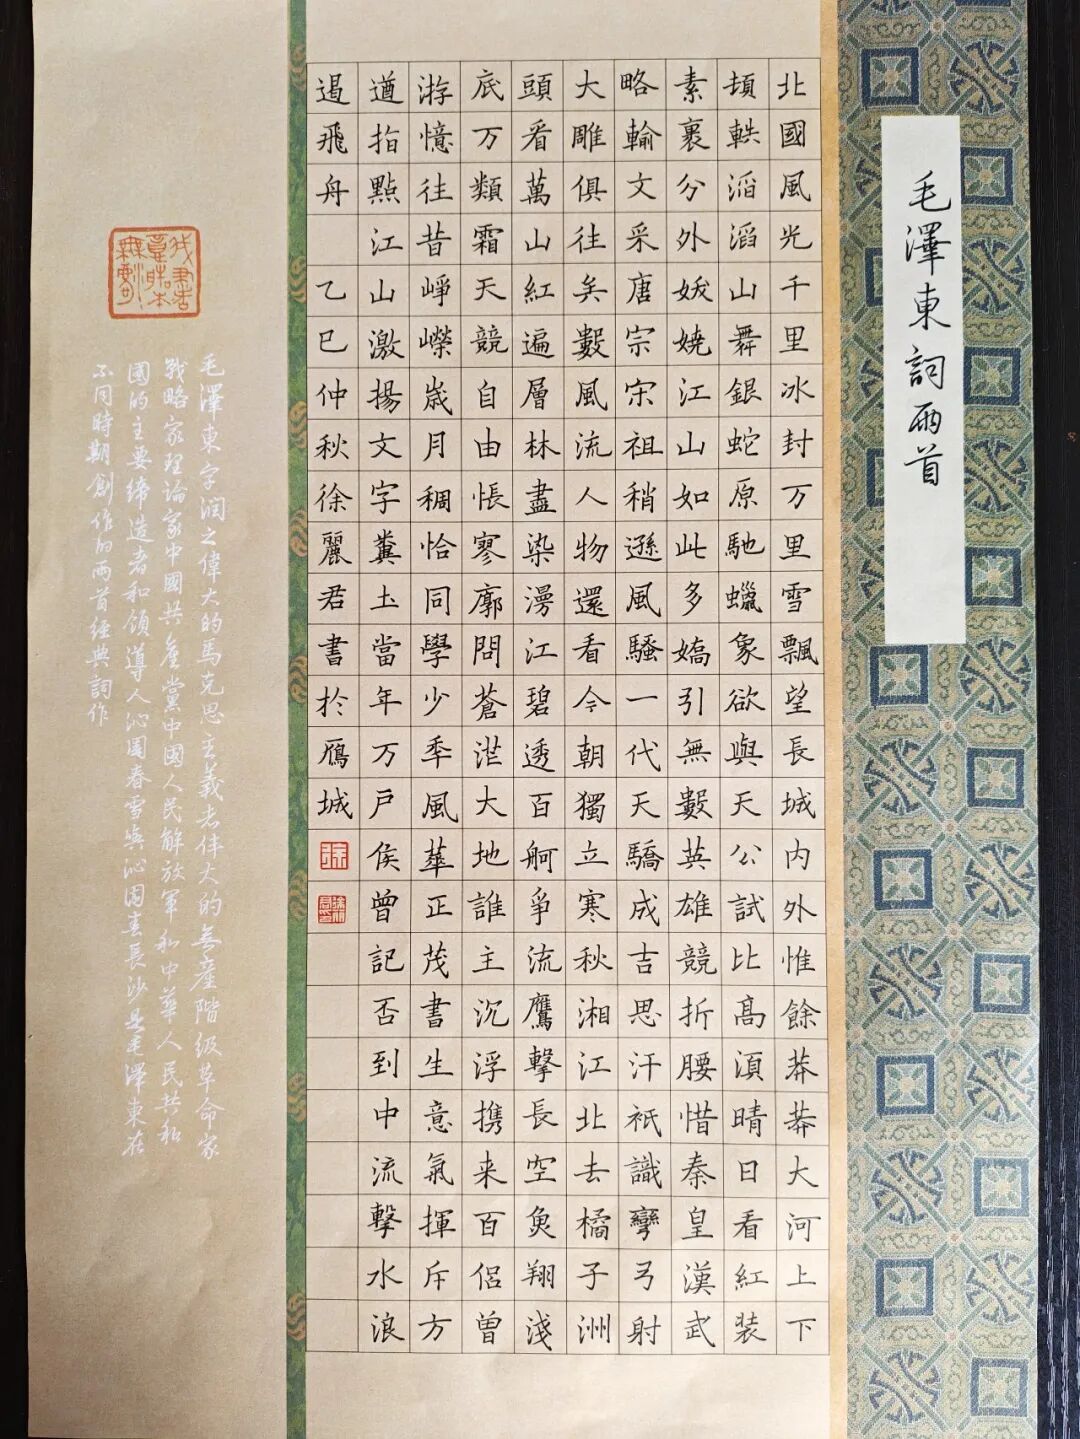 毛澤東詞兩首
北國風光千里冰封万里雪飄望長城内外惟餘莽莽大河上下
頓軼滔滔山舞銀蛇原馳蠟象欲與天公試比高須晴日看紅装
素裹分外妖嬈江山如此多嬌引無數英雄競折腰惜秦皇漢武
略輸文采唐宗宋祖稍遜風騷一代天驕成吉思汗衹識彎弓射
大雕俱往矣數風流人物還看今朝獨立寒秋湘江北去橘子洲
頭看萬山紅遍層林盡染漫江碧透百舸爭流鷹擊長空魚翔淺
底万類霜天競自由悵寥廓問蒼茫大地誰主沉浮携来百侣曾
游憶往昔崢嶸歲月稠恰同學少年風華正茂書生意氣揮斥方
遒指點江山激揚文字糞土當年万户侯曾記否到中流擊水浪
遏飛舟 乙巳仲秋徐麗君書於鴈城
毛澤東字潤之偉大的馬克思主義者偉大的無產階級革命家
戰略家理論家中國共產黨中國人民解放軍和中華人民共和
國的主要締造者和領導人沁園春雪與沁園春長沙是毛澤東在
不同時期創作的兩首經典詞作